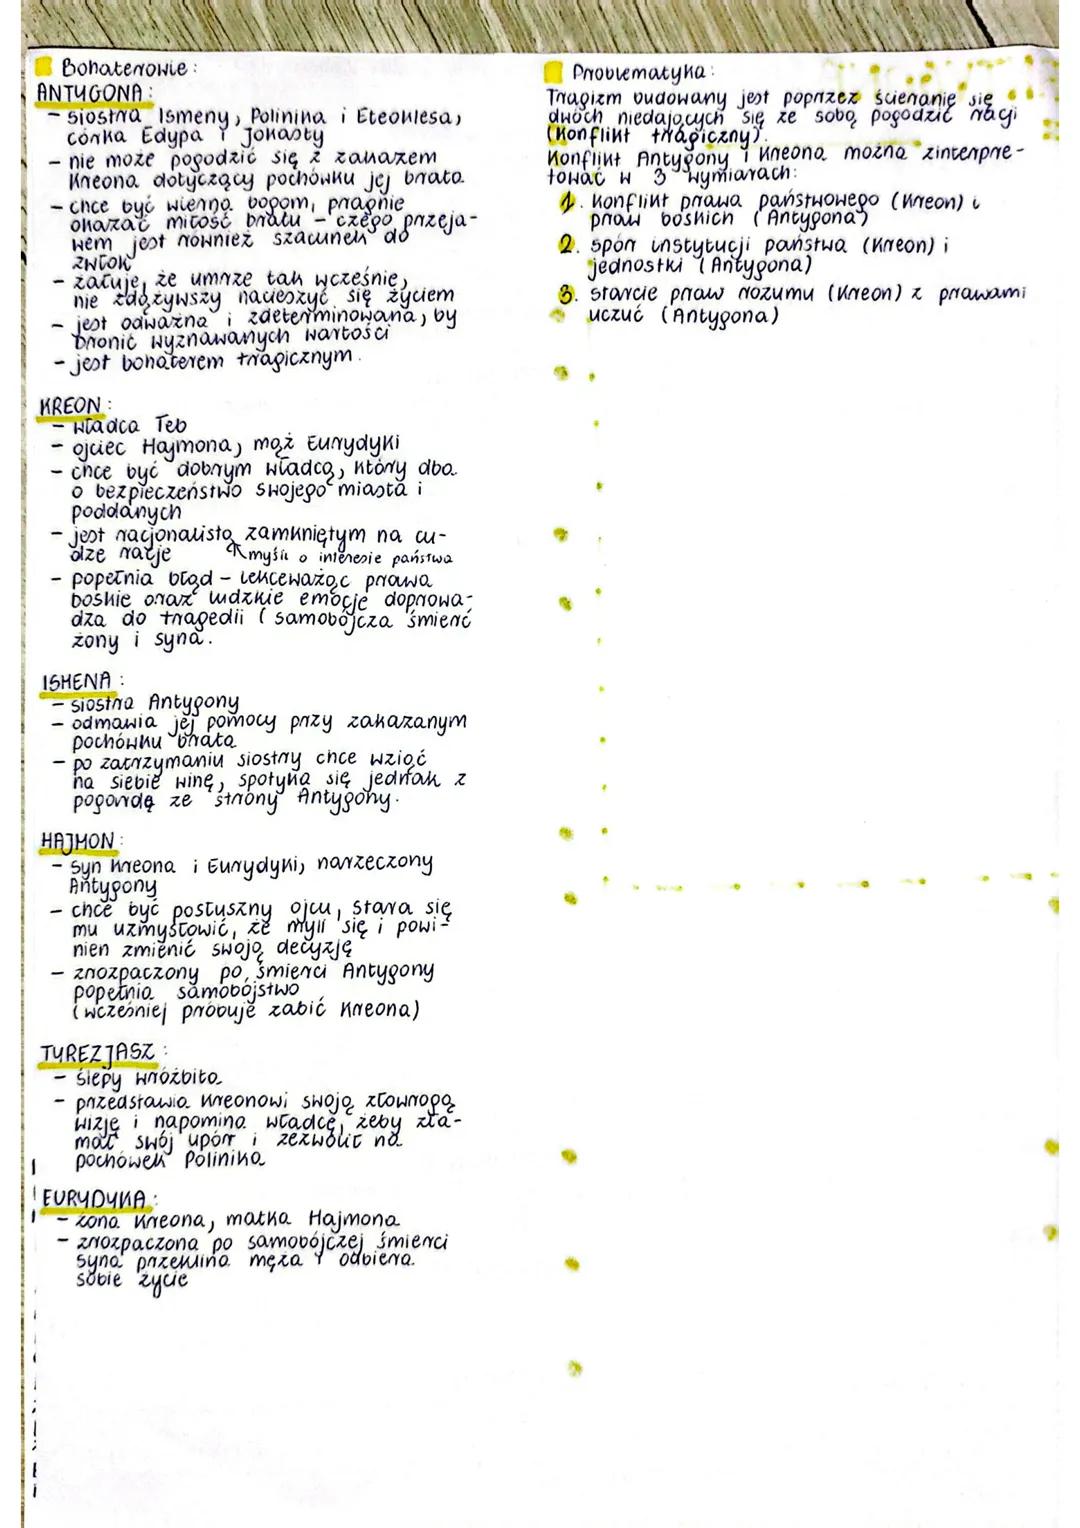 Bohaterowie:
ANTYGONA:
- siostra Ismeny, Polinika i Eteoklesa,
córka Edypa i Jokasty
- nie może pogodzić się z zakazem
Kreona dotyczący pochówku jej brata
- chce być wierna bogom, pragnie
okazać miłość bratu - czego przeja-
wem jest również szacunek do
zwłok
- żałuje, że umrze tak wcześnie,
nie zdążywszy nacieszyć się życiem
- jest odważna i zdeterminowana, by
bronić wyznawanych wartości
- jest bohaterem tragicznym.
KREON:
- władca Teb
- ojciec Hajmona, mąż Eurydyki
- chce być dobrym władcą, który dba
o bezpieczeństwo swojego miasta i
poddanych
- jest racjonalistą zamkniętym na cu-
dze racje
myśli o interesie państwa
- popełnia błąd - lekceważąc prawa
boskie oraz ludzkie emocje doprowa-
dza do tragedii (samobójcza śmierć
żony i syna.
ISMENA:
- siostra Antygony
- odmawia jej pomocy przy zakazanym
pochówku brata
- po zatrzymaniu siostry chce wziąć
na siebie winę, spotyka się jednak z
pogardą ze strony Antygony.
HAJMON:
- syn Kreona i Eurydyki, narzeczony
Antygony
- chce być posłuszny ojcu, stara się
mu uzmysłowić, że myli się i powi-
nien zmienić swoją decyzję
- zrozpaczony po śmierci Antygony
popełnia samobójstwo
(wcześniej próbuje zabić Kreona)
TYREZJASZ:
- ślepy wróżbita
- przedstawia Kreonowi swoją złowrogą
wizję i napomina władcę, żeby zła-
mał swój upór i zezwolił na
pochówek Polinika
EURYDYKA:
- żona Kreona, matka Hajmona
- zrozpaczona po samobójczej śmierci
syna przeklina męża i odbiera
sobie życie
Problematyka:
Tragizm budowany jest poprzez ścieranie się
dwóch niedających się ze sobą pogodzić racji
(konflikt tragiczny).
Konflikt Antygony i Kreona można zinterpre-
tować w 3 wymiarach:
1. Konflikt prawa państwowego (Kreon) i
praw boskich (Antygona)
2. spór instytucji państwa (Kreon) i
jednostki (Antygona)
3. starcie praw rozumu (Kreon) z prawami
uczuć (Antygona)